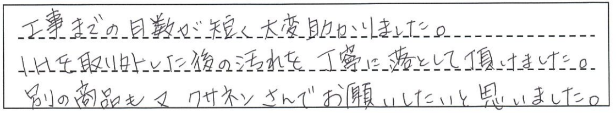 工事までの日数が短く大変助かりました。
IHを取り外した後の汚れを丁寧に落として頂けました。
別の商品も又クサネンさんでお願いしたいと思いました。